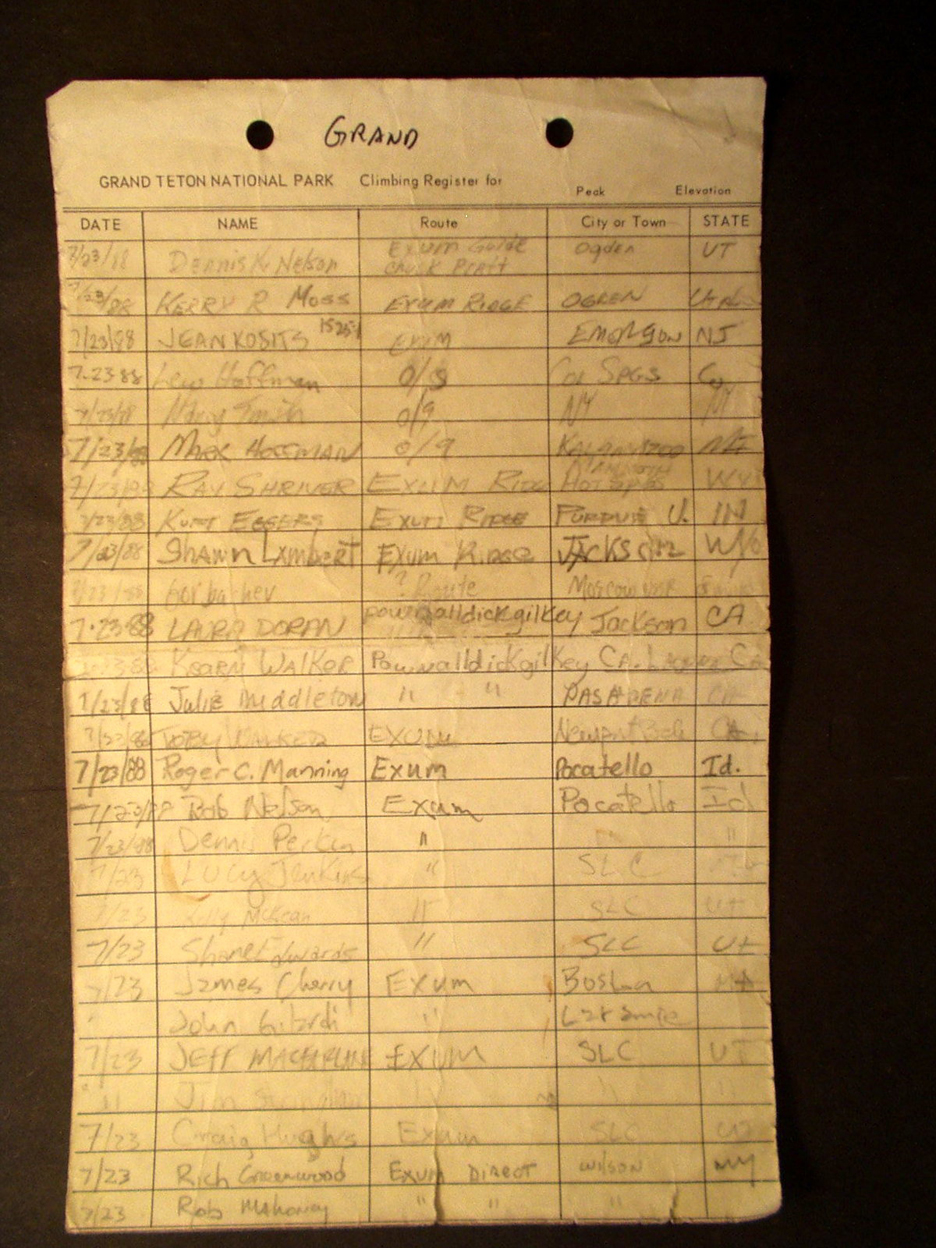 GRAND
GRAND TETON NATIONAL PARK Climbing Register for
Peak Elevation
DATE NAME Route City or Town STATE
7/23/88 Dennis K. Nelson Exum Guide Chuck Pratt Ogden UT
7/23/88 KERRY R MOSS EXUM RIDGE OGDEN Utah
7/23/88 JEAN KOSITS Exum NJ
7.23.88 Lew Hoffman O/S Col SPGS Co
7/23/88 Smith O/S NY NY
7/23/88 MARK O/S KALAMAZOO MI
7/23/88 RAY SHRIVER EXUM RIDGE MAMMOTH HOT SPGS WY
7/23/88 KURT EGGERS EXUM RIDGE PURDUE U. IN
7/23/88 Shawn Lambert EXUM RIDGE JACKSON WYO
7/23/88 Gorbachev ? Route Moscow
7.23.88 LAURA DORAN pownalldickgilkey Jackson CA
7.23.88 KEARN WALKER Pownalldickgilkey CA.
7/23/88 Julie Middleton " " PASADENA CA
7/23/88 TOBY WALKER EXUM Newport CA.
7/23/88 Roger C. Manning Exum Pocatello Id.
7/23/88 Bob Nelson Exum Pocatello Id
7/23/88 Dennis Perkin " "
7/23 LUCY Jenkins " SLC
7/23 Kelly McKean " SLC UT
7/23 Shane Edwards " SLC Ut
7/23 James Cherry Exum Boston MA
" John "
7/23 JEFF MACFARLANE EXUM SLC UT
" Jim " " "
7/23 Craig Hughes Exum SLC UT
7/23 Rich Greenwood Exum DIRECT Wilson WY
7/23 Rob Mahoney " " "